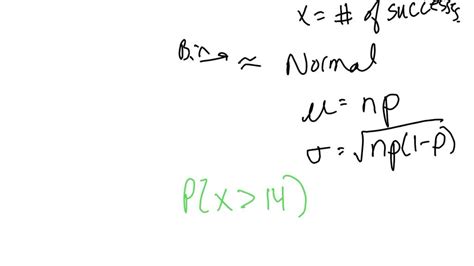 x = # of success
Bin → ≈ Normal
μ = np
σ = √np(1-p)
P(X > 14)